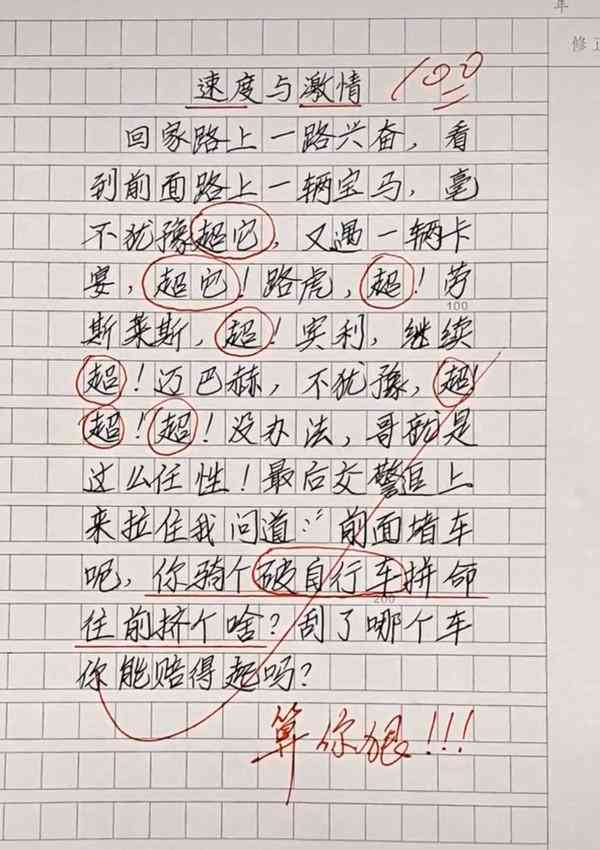 年
修正
速度与激情 100
回家路上一路兴奋，看
到前面路上一辆宝马，毫
不犹豫超它，又遇一辆卡
宴，超它！路虎，超！劳
100
斯莱斯，超！宾利，继续
超！迈巴赫，不犹豫，超
超！超！没办法，哥就是
这么任性！最后交警追上
来拉住我问道：“前面堵车
呢，你骑个破自行车拼命
200
往前挤个啥？刮了哪个车
你能赔得起吗？
算你狠！！！